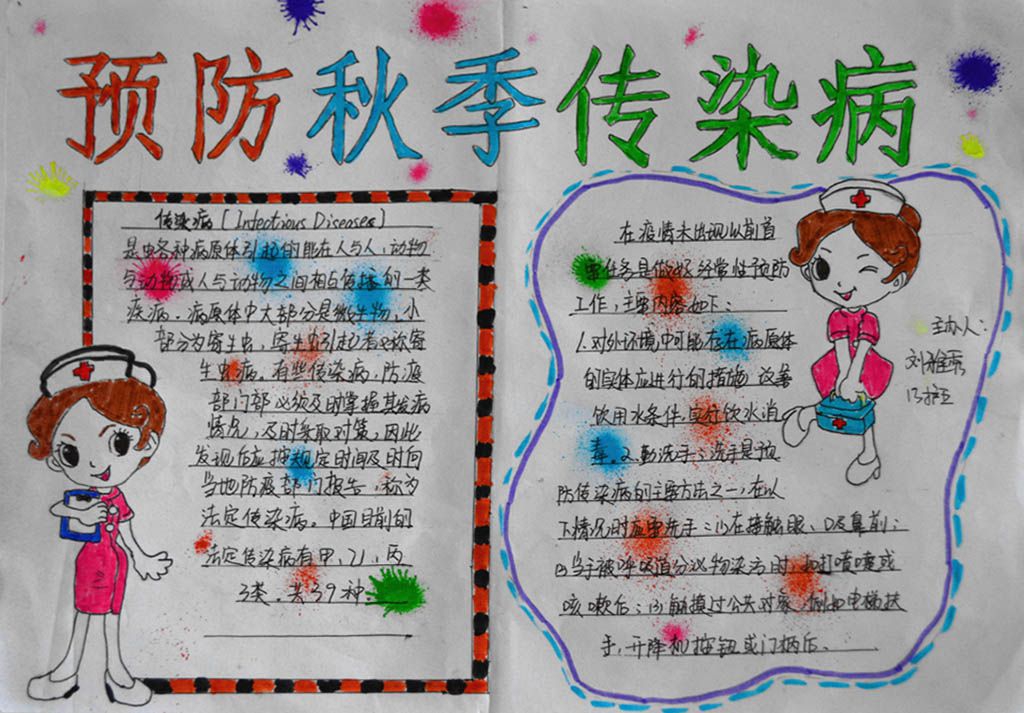 预防秋季传染病
传染病(Infectious Diseases)
是由各种病原体引起的能在人与人、动物
与动物或人与动物之间相互传播的一类
疾病。病原体中大部分是微生物，小
部分为寄生虫，寄生虫引起者又称寄
生虫病。有些传染病，防疫
部门部必须及时掌握其发病
情况，及时采取对策，因此
发现后应按规定时间及时向
当地防疫部门报告，称为
法定传染病。中国目前的
法定传染病有甲、乙、丙
3类，共39种
在疫情未出现以前首
要任务是做好经常性预防
工作，主要内容如下：
1.对外环境中可能存在病原体
的实体应进行的措施 改善
饮用水条件 实行饮水消
毒。2.勤洗手：洗手是预
防传染病的主要方法之一，在以
下情况时应要洗手：(1)在接触眼、口及鼻前；
(2)当手被呼吸道分泌物染污时，如打喷嚏或
咳嗽后；(3)触摸过公共对象，例如电梯扶
手，升降机按钮或门柄后。
主办人：
刘雅秀
13护